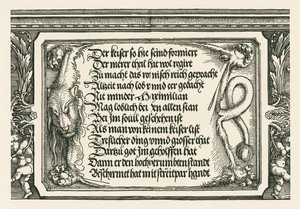 Der keiser so hie seind formiert
Der merer theil hat wol regirt
Zu macht das römisch reich gebracht
Allzeit nach lob und eer gedacht
Nit minder Maximilian
Mag loblich bey in allen stan
Bei im souil geschehen ist
Als man von keinem keiser list
Treflicher ding unnd grosser that
Dartzu got im geholffen hat
Dann er den hochberumbten standt
Beschirmet hat mit streitpar handt